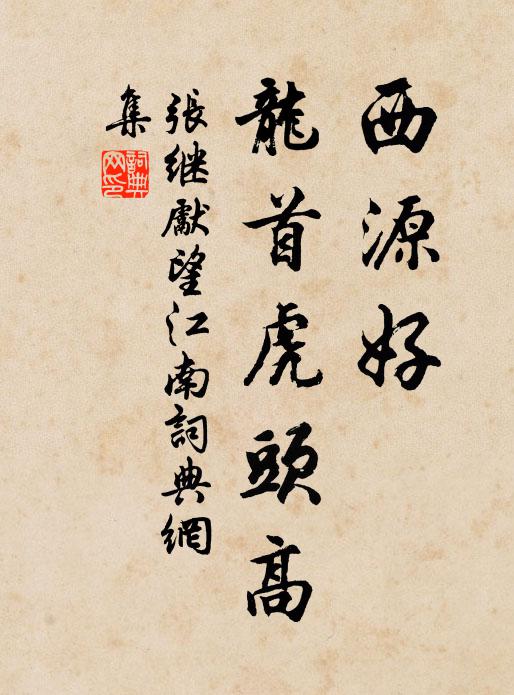 西源好
龍首虎頭高
張继獻望江南詞典網
集
詞典
网印